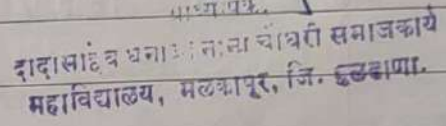 दादासाहेब धनाजी नाना चौधरी समाजकार्य
महाविद्यालय, मलकापूर, जि. बुलढाणा.